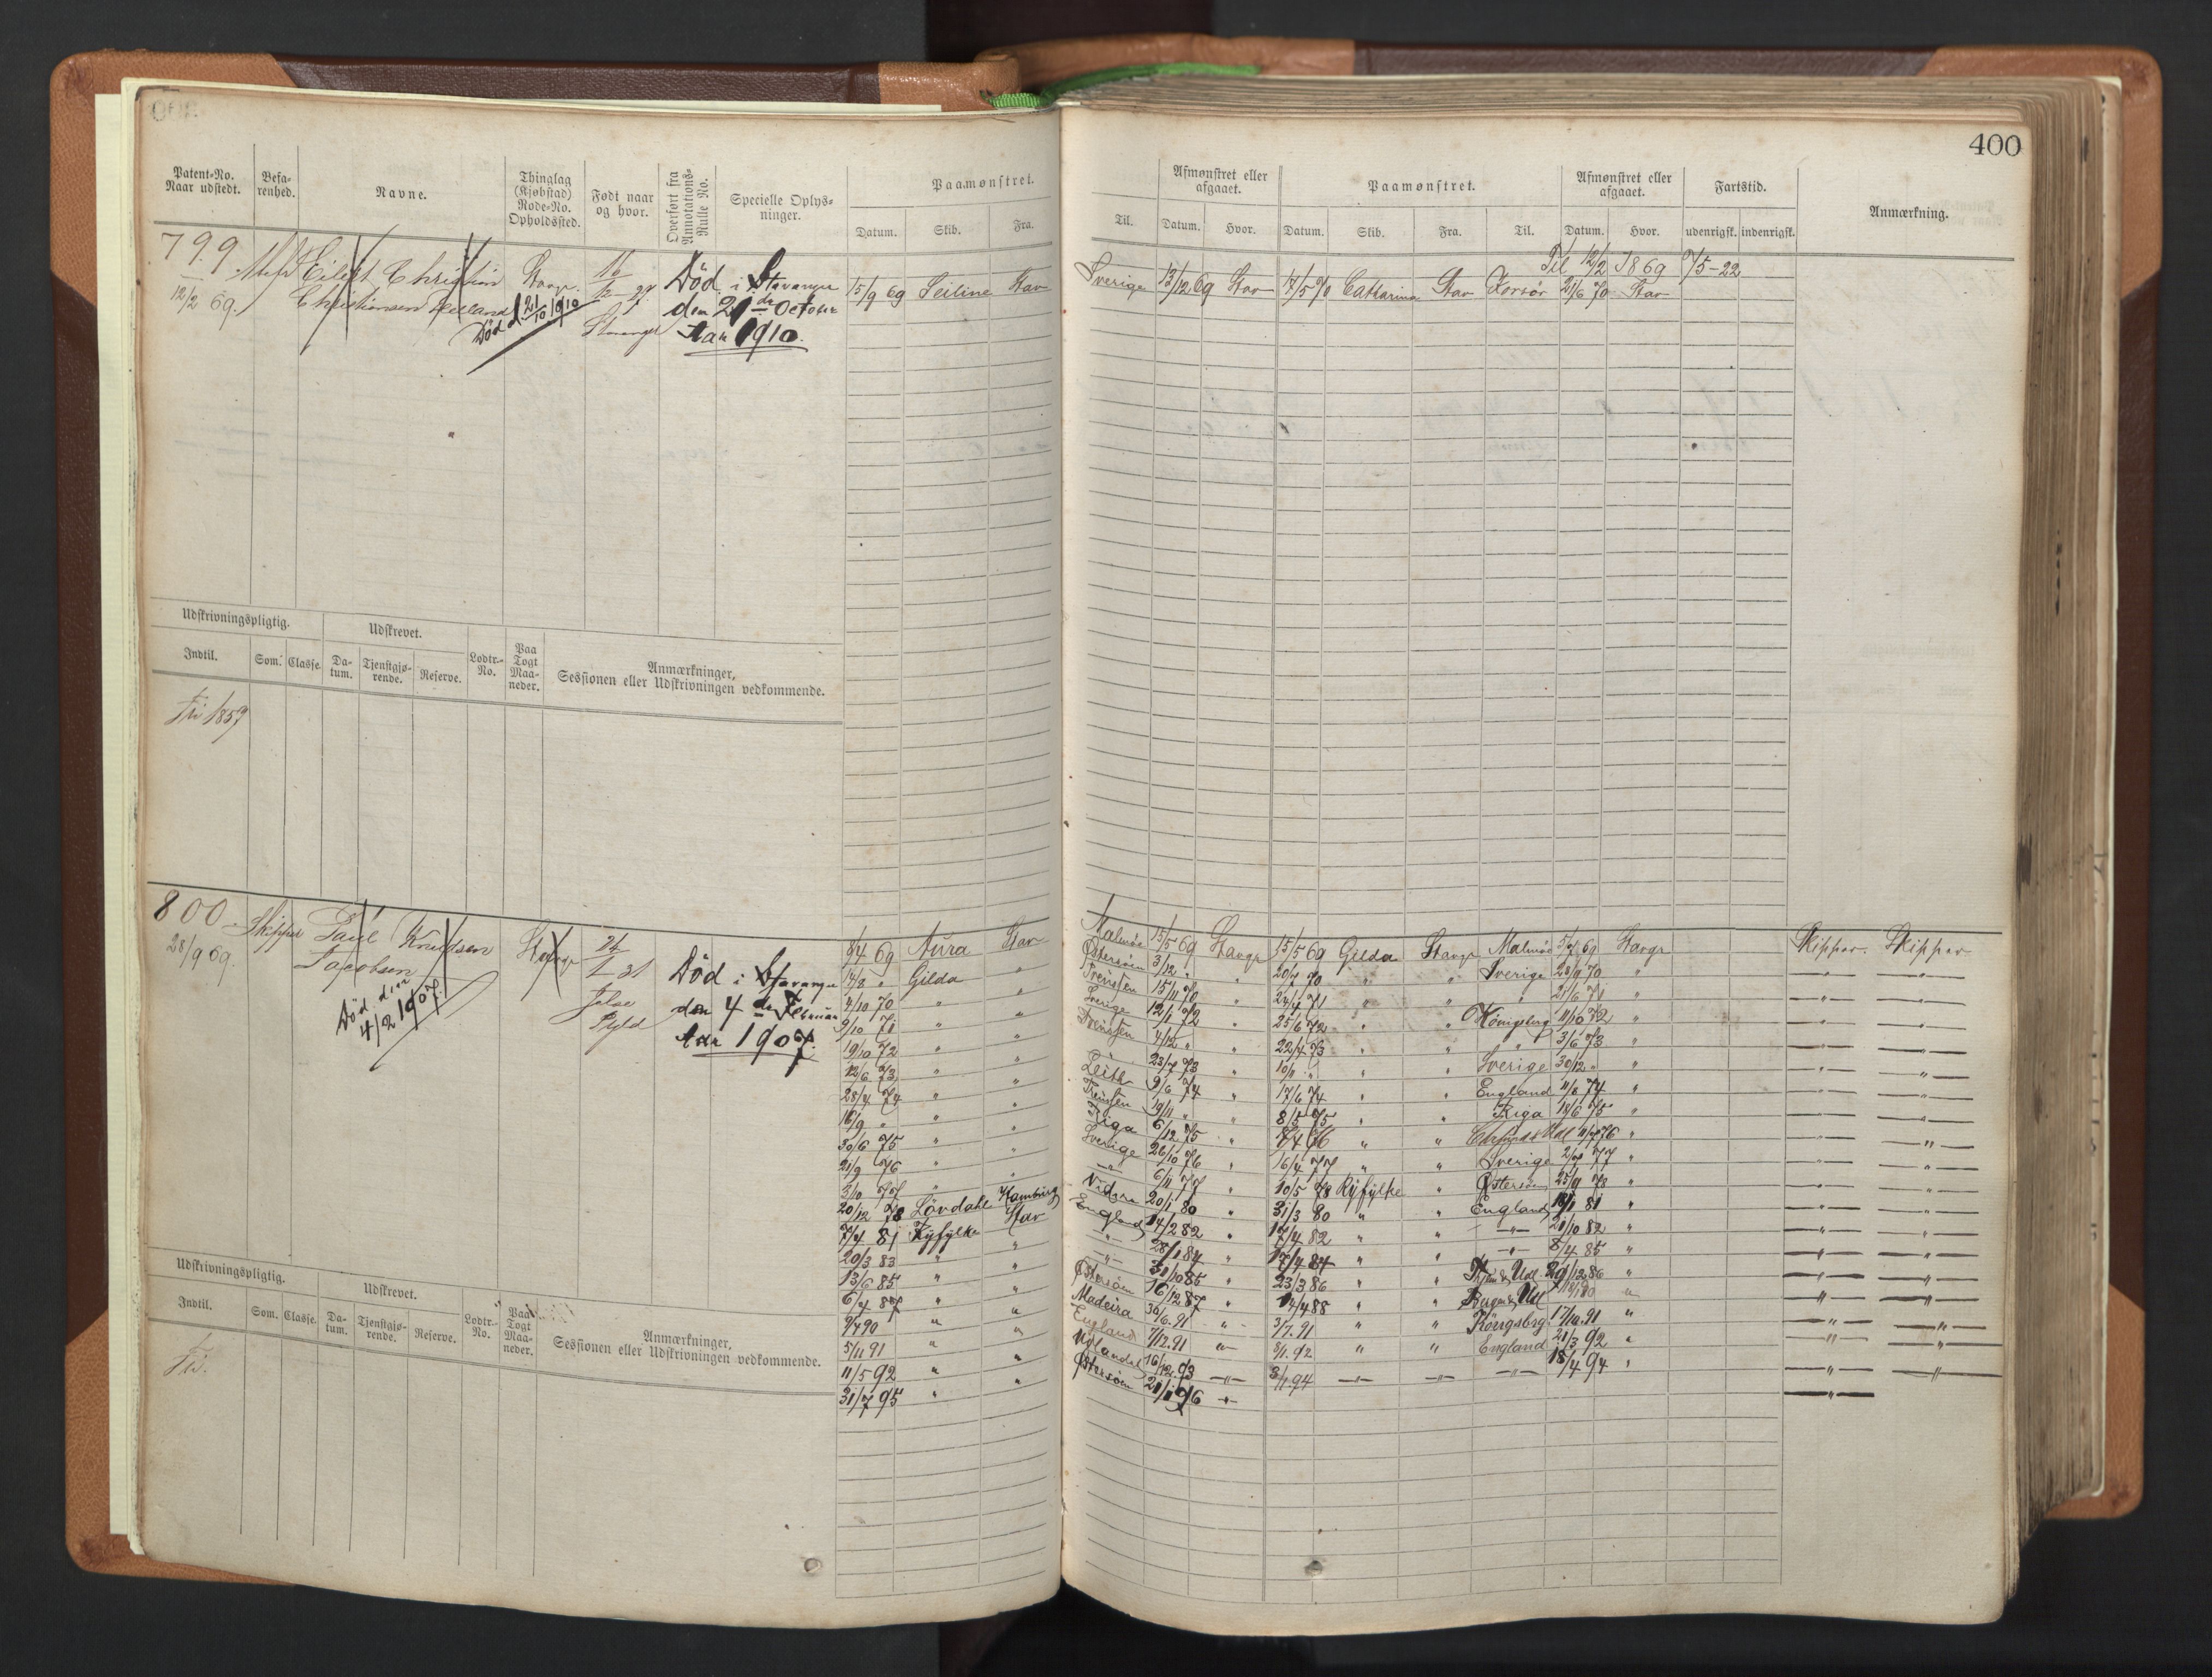 400
Patent-No. Naar udstedt.
Befarenhed.
Navne.
Thinglag (Kjøbstad) Rode-No. Opholdssted.
Født naar og hvor.
Overført fra Annotations-Rulle No.
Specielle Oplysninger.
Paamønstret.
Datum. Skib. Fra. Til.
Afmønstret eller afgaaet.
Datum. Hvor.
Paamønstret.
Datum. Skib. Fra. Til.
Afmønstret eller afgaaet.
Datum. Hvor.
Fartstid.
udenrigsk. indenrigsk.
Anmærkning.
799
12/2 69.
Christiansen
Død d 21/10 1910
Stavanger
Død i Stavanger
den 21de October
Aar 1910.
15/9 69 Seiline Stav
Sverige 13/12 69 Stav 17/5 70 Catharina Stav Korsör 21/6 70 Stav
Til 12/2 1869 7/5-22
Udskrivningspligtig.
Udskrevet.
Indtil. Som. Classe. Datum. Tjenstgjørende. Reserve. Lodtr.-No. Paa Togt Maaneder.
Anmærkninger, Sessionen eller Udskrivningen vedkommende.
Fri 1859
800
28/9 69.
Skipper Paul Knudsen
Jacobsen
Død den
4/2 1907.
Stavgr
Jelse
Død i Stavanger
den 4de Februar
Aar 1907.
69 Aura Stav
14/8 " Gilda "
4/10 70 " "
9/10 71 " "
19/10 72 " "
12/6 73 " "
28/4 74 " "
16/9 " " "
30/6 75 " "
21/9 76 " "
3/10 77 "
20/12 78 Lövdahl Hamburg
7/4 81 Ryfylke Stav
20/3 83 " "
13/6 85 " "
6/4 87 " "
9/4 90 " "
5/11 91 " "
11/5 92 " "
31/7 95 " "
Malmöe 15/5 69 Stavgr 15/5 69 Gilda Stavgr Malmöe 69 Stavgr Skipper. Skipper
Østersöen 3/12 " " 20/7 70 " " Sverige 28/9 70 "
Preussen 15/11 70 " 24/4 71 " " " 21/6 71 "
Sverige 12/1 72 " 25/6 72 " " Königsberg 11/10 72 "
Preussen 4/12 " " 22/4 73 " " " 3/6 73 "
" 23/7 73 " 10/11 " " " Sverige 30/12 " "
Leith 9/6 74 " 17/6 74 " " England 11/8 74 "
Preussen 19/11 " " 8/5 75 " " Riga 18/6 75 "
Riga 6/12 75 " 76 " " 76 "
Sverige 26/10 76 " 16/4 77 " " Sverige 77 "
" 6/11 77 " 10/5 78 Ryfylke " Østersöen 25/9 78 "
20/1 80 " 31/3 80 " " England 81 "
England 14/2 82 " 17/4 82 " " " 21/10 82 "
" 28/1 84 " 17/4 84 " " " 8/4 85 "
" 31/10 85 " 23/3 86 " " 86 "
Østersöen 16/12 87 " 14/4 88 " "
Madeira 30/6. 91 " 3/7. 91 " " Königsbrg 17/10. 91 "
England 7/12. 91 " 3/1. 92 " " England 21/3 92 "
16/12. 93 " 3/1 94 " " " 18/4 94 "
Østersöen 21/1 96 "
Udskrivningspligtig.
Udskrevet.
Indtil. Som. Classe. Datum. Tjenstgjørende. Reserve. Lodtr.-No. Paa Togt Maaneder.
Anmærkninger, Sessionen eller Udskrivningen vedkommende.
Fri.